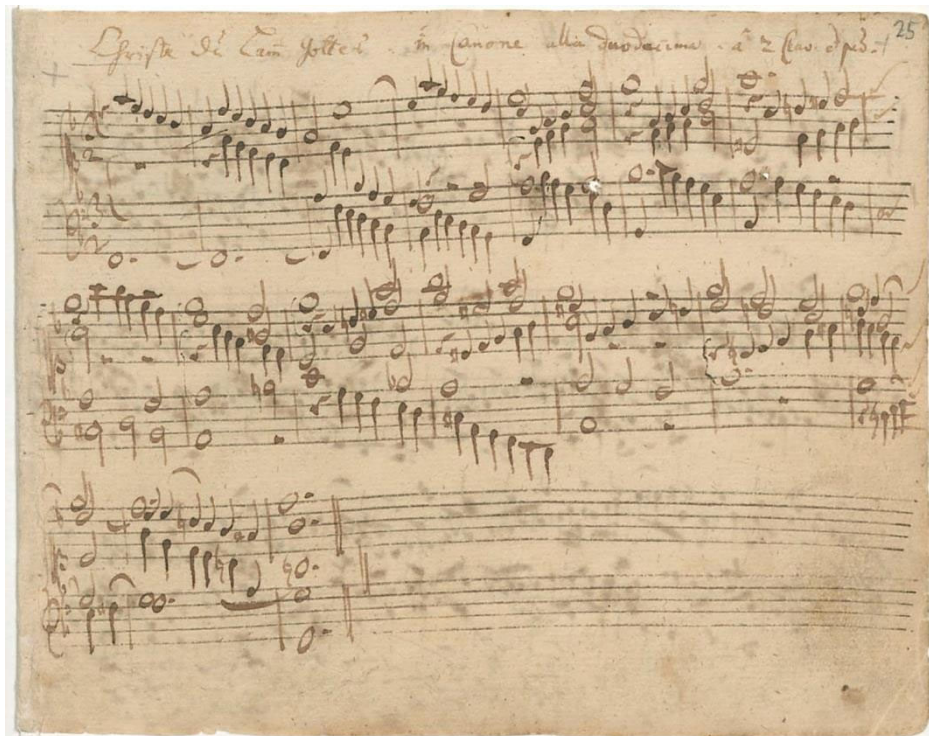 Christe du Lam̄ Gottes. in Canone alla duodecima. à 2 Clav. è ped. 25